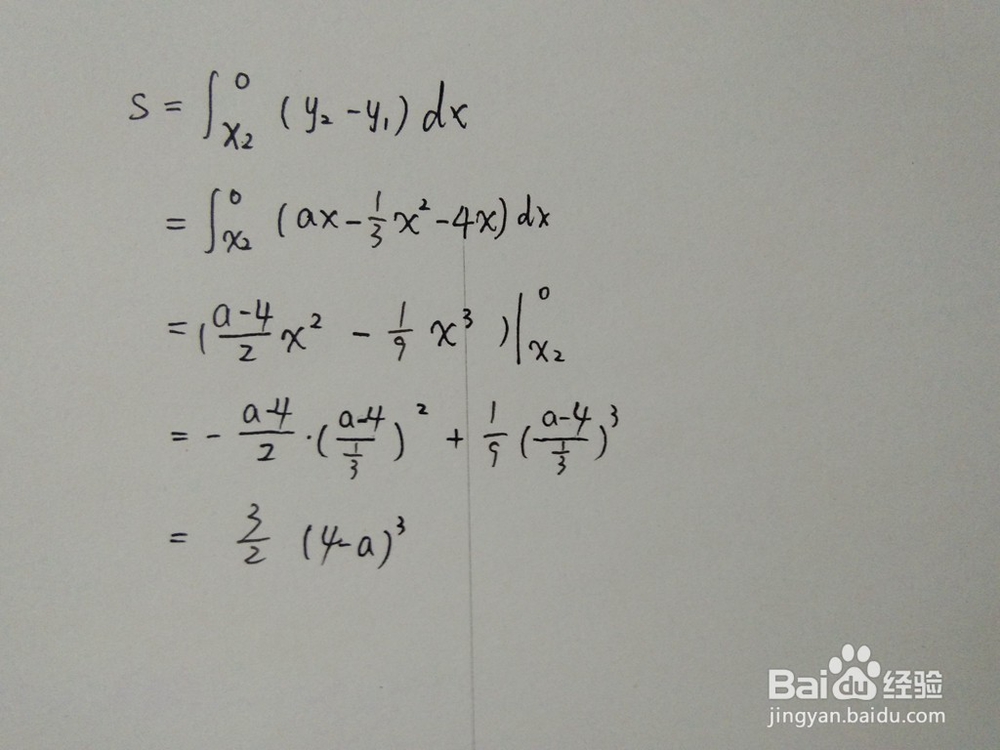 S = ∫_{x₂}^{0} (y₂ - y₁) dx
= ∫_{x₂}^{0} (ax - \frac{1}{3}x² - 4x) dx
= (\frac{a-4}{2}x² - \frac{1}{9}x³)|_{x₂}^{0}
= - \frac{a-4}{2}·(\frac{a-4}{\frac{1}{3}})² + \frac{1}{9}(\frac{a-4}{\frac{1}{3}})³
= \frac{3}{2} (4-a)³
Baidu经验
jingyan.baidu.com